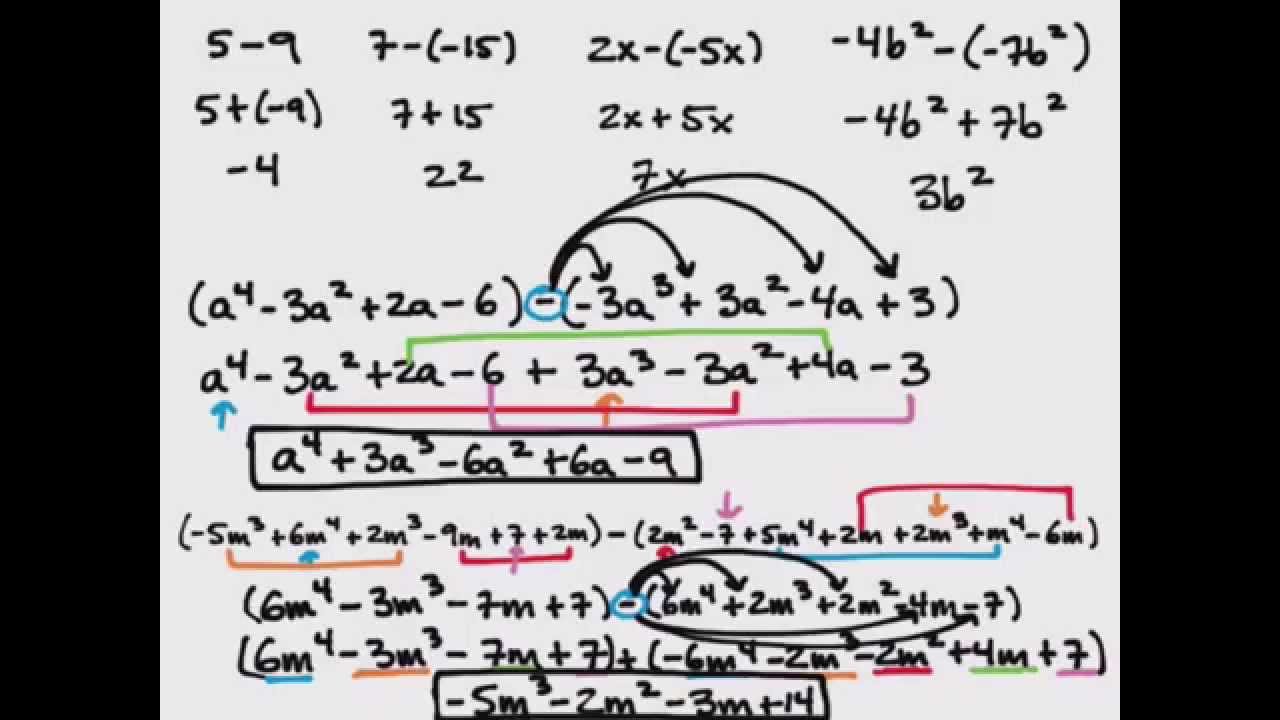 5 - 9 7 - (-15) 2x - (-5x) -4b² - (-7b²)
5 + (-9) 7 + 15 2x + 5x -4b² + 7b²
-4 22 7x 3b²
(a⁴ - 3a² + 2a - 6) - (-3a³ + 3a² - 4a + 3)
a⁴ - 3a² + 2a - 6 + 3a³ - 3a² + 4a - 3
a⁴ + 3a³ - 6a² + 6a - 9
(-5m³ + 6m⁴ + 2m³ - 9m + 7 + 2m) - (2m² - 7 + 5m⁴ + 2m + 2m³ + m⁴ - 6m)
(6m⁴ - 3m³ - 7m + 7) - (6m⁴ + 2m³ + 2m² - 4m - 7)
(6m⁴ - 3m³ - 7m + 7) + (-6m⁴ - 2m³ - 2m² + 4m + 7)
-5m³ - 2m² - 3m + 14